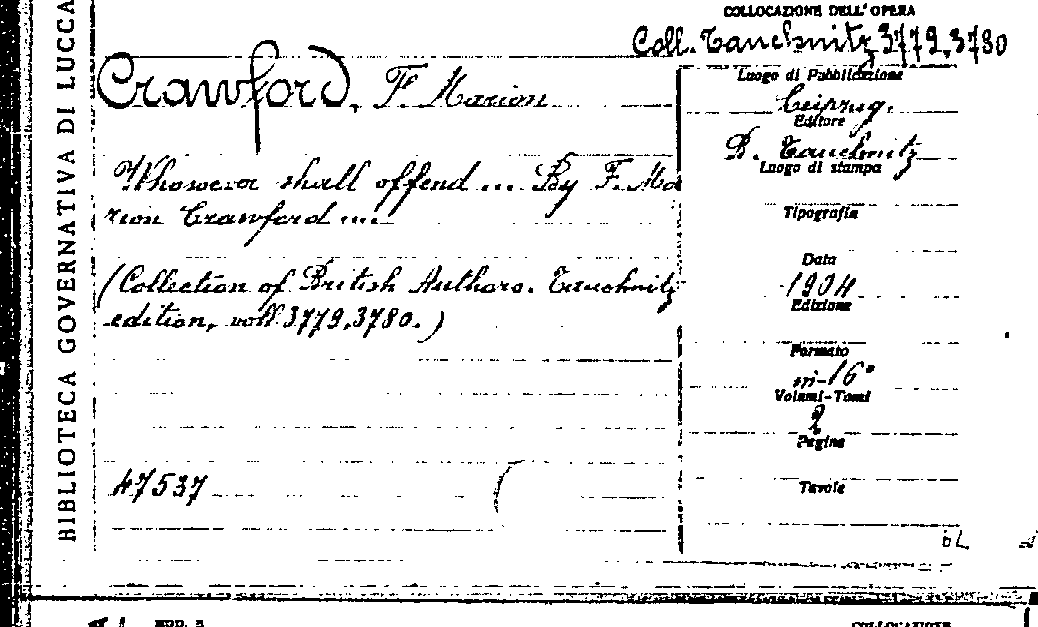 COLLOCAZIONE DELL'OPERA
Coll. Tauchnitz 3779.3780
BIBLIOTECA GOVERNATIVA DI LUCCA
Crawford, F. Marion
Whosoever shall offend ... By F. Ma
rion Crawford ...
(Collection of British Authors. Tauchnitz
edition, voll 3779.3780.)
47537
Luogo di Pubblicazione
Leipzig.
Editore
B. Tauchnitz
Luogo di stampa
Tipografia
Data
1904
Edizione
Formato
in-16°
Volumi-Tomi
2
Pagine
Tavole
MOD. 3
COLLOCAZIONE